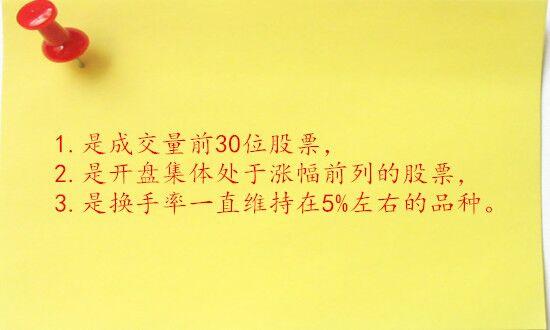 1.是成交量前30位股票，
2.是开盘集体处于涨幅前列的股票，
3.是换手率一直维持在5%左右的品种。